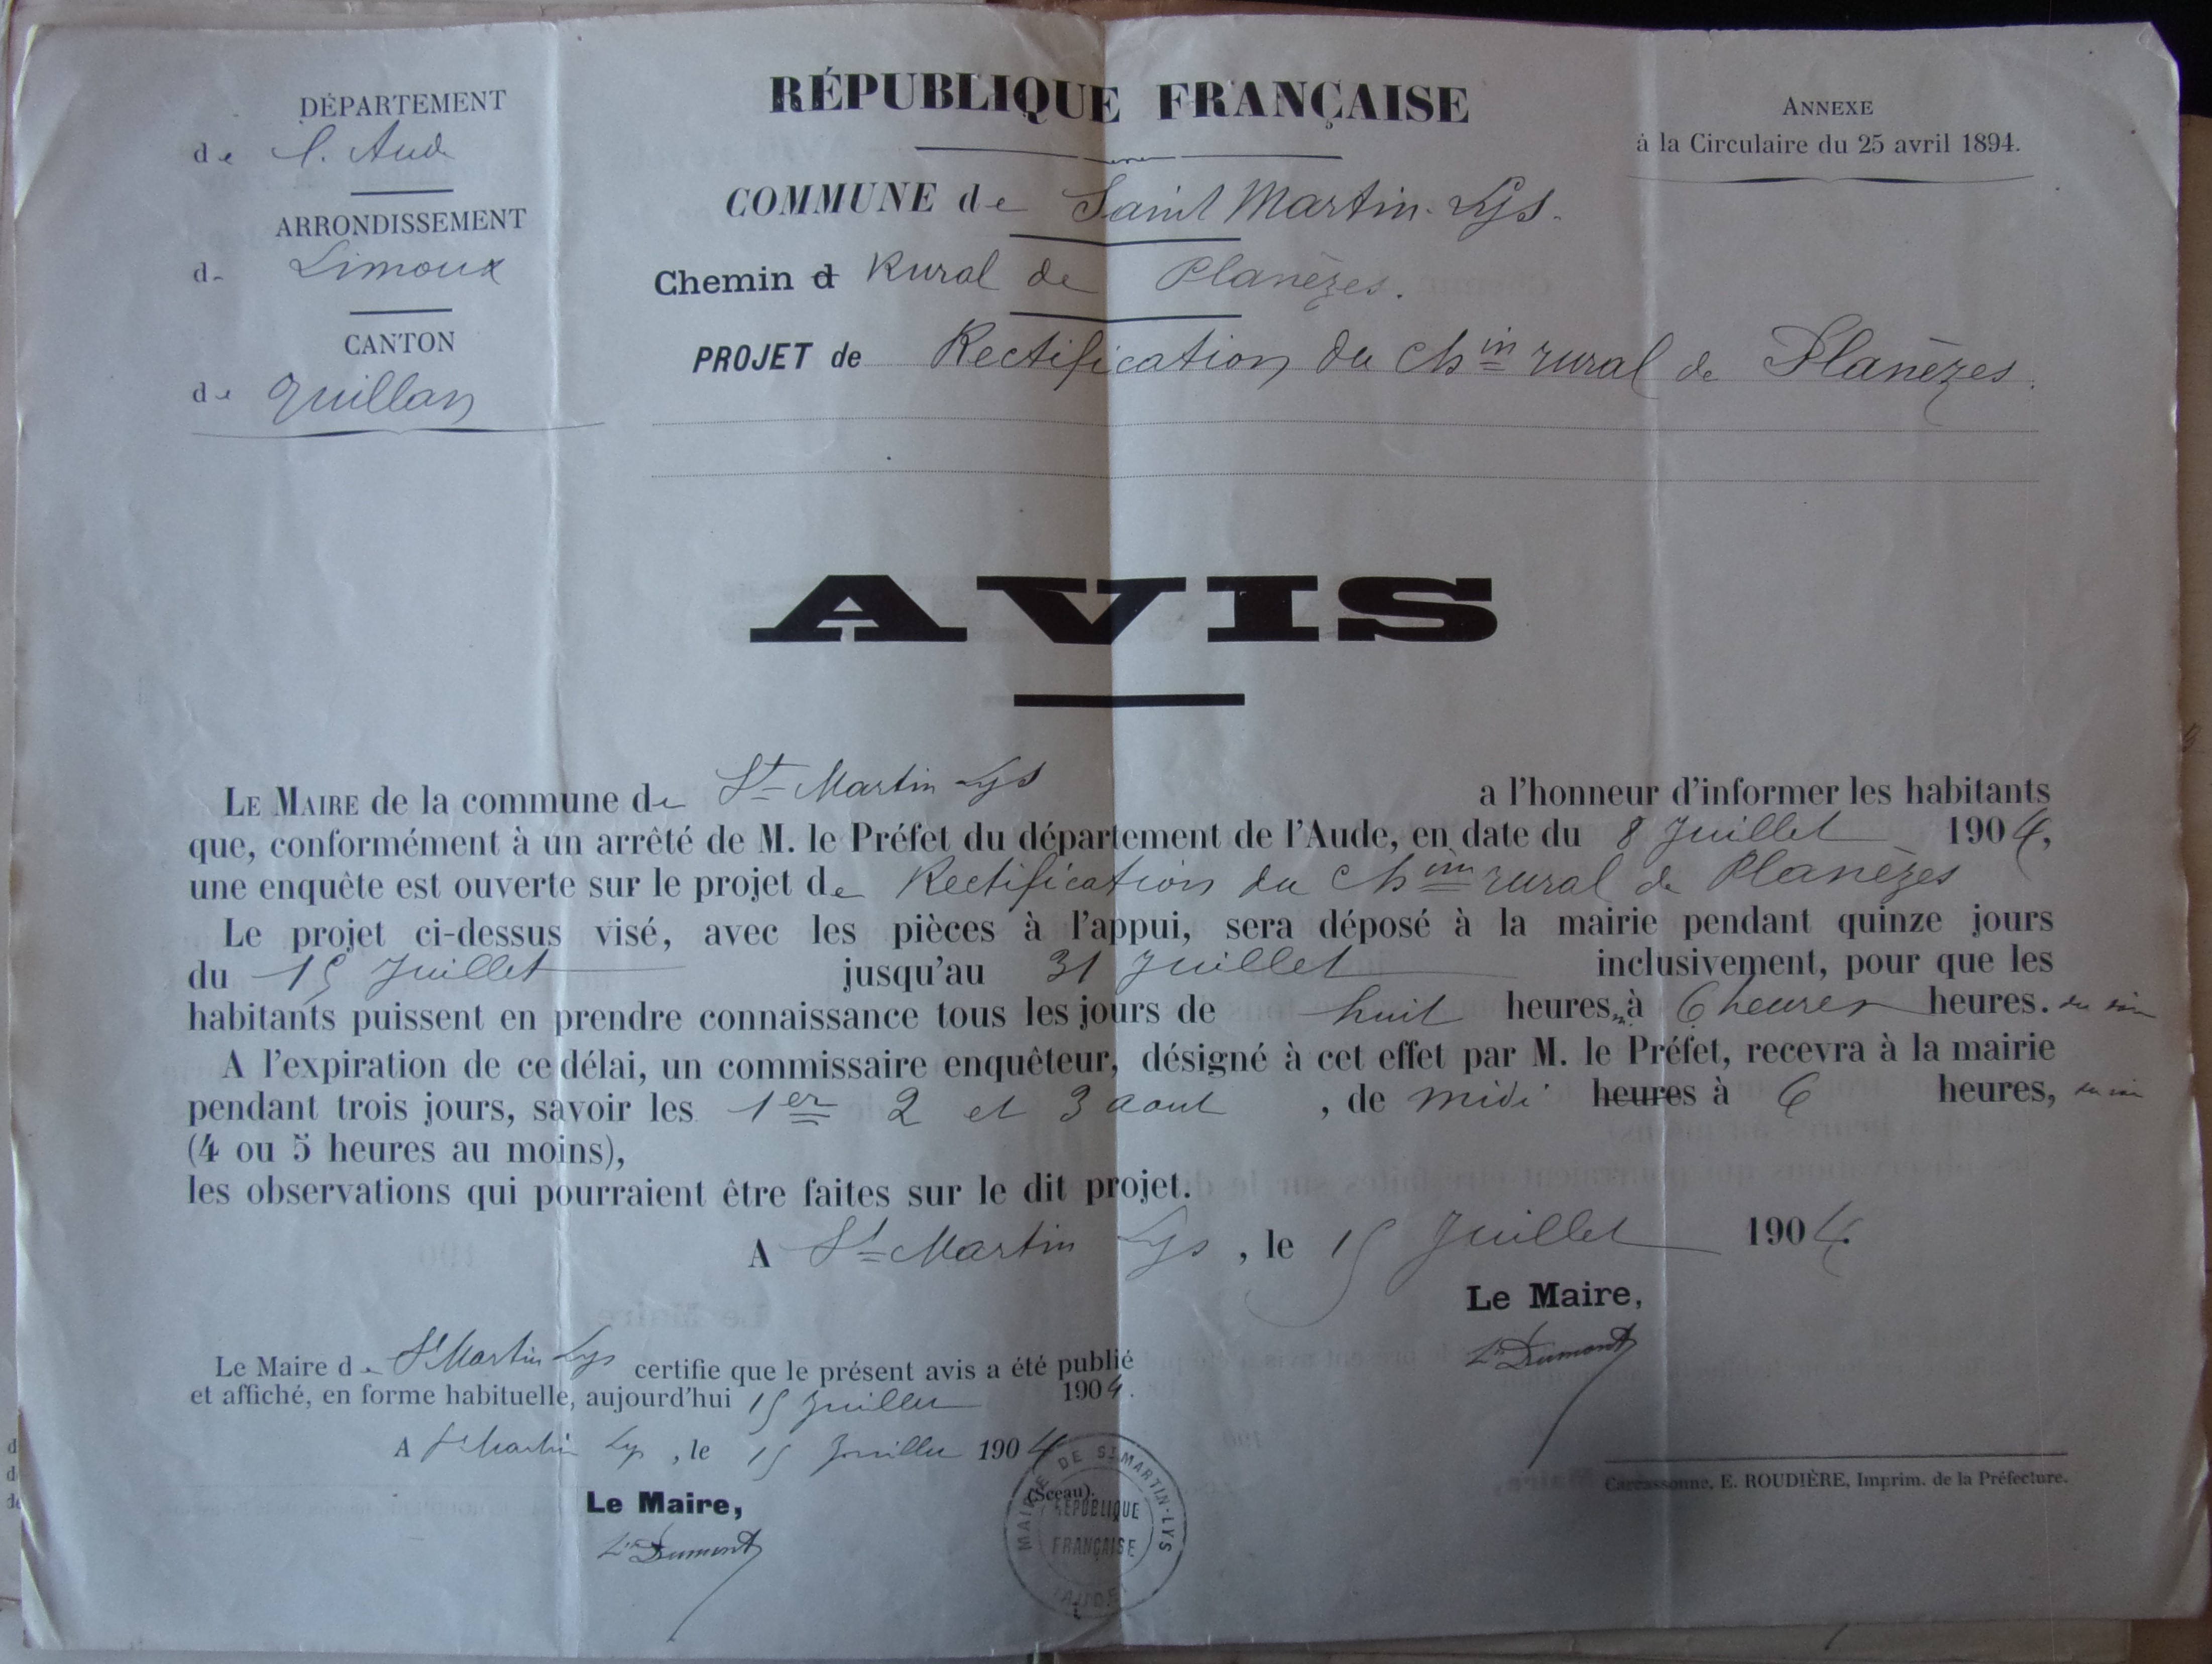 DÉPARTEMENT
de l'Aude
ARRONDISSEMENT
de Limoux
CANTON
de Quillan
RÉPUBLIQUE FRANÇAISE
COMMUNE de Saint Martin-Lys.
Chemin d Rural de Planèzes.
PROJET de Rectification du Chin rural de Planèzes.
ANNEXE
à la Circulaire du 25 avril 1894.
AVIS
LE MAIRE de la commune de St Martin Lys a l'honneur d'informer les habitants
que, conformément à un arrêté de M. le Préfet du département de l'Aude, en date du 8 Juillet 1904,
une enquête est ouverte sur le projet de Rectification du Chin rural de Planèzes
Le projet ci-dessus visé, avec les pièces à l'appui, sera déposé à la mairie pendant quinze jours
du 15 Juillet jusqu'au 31 Juillet inclusivement, pour que les
habitants puissent en prendre connaissance tous les jours de huit heures à 6 heures heures. du soir
A l'expiration de ce délai, un commissaire enquêteur, désigné à cet effet par M. le Préfet, recevra à la mairie
pendant trois jours, savoir les 1er 2 et 3 aout, de midi heures à 6 heures, du soir
(4 ou 5 heures au moins),
les observations qui pourraient être faites sur le dit projet.
A St Martin Lys, le 15 Juillet 1904.
Le Maire,
Dumont
Le Maire de St Martin Lys certifie que le présent avis a été publié
et affiché, en forme habituelle, aujourd'hui 15 Juillet 1904.
A St Martin Lys, le 15 Juillet 1904
Le Maire,
Dumont
(Sceau).
MAIRIE DE ST MARTIN-LYS
RÉPUBLIQUE
FRANÇAISE
AUDE
Carcassonne, E. ROUDIÈRE, Imprim. de la Préfecture.